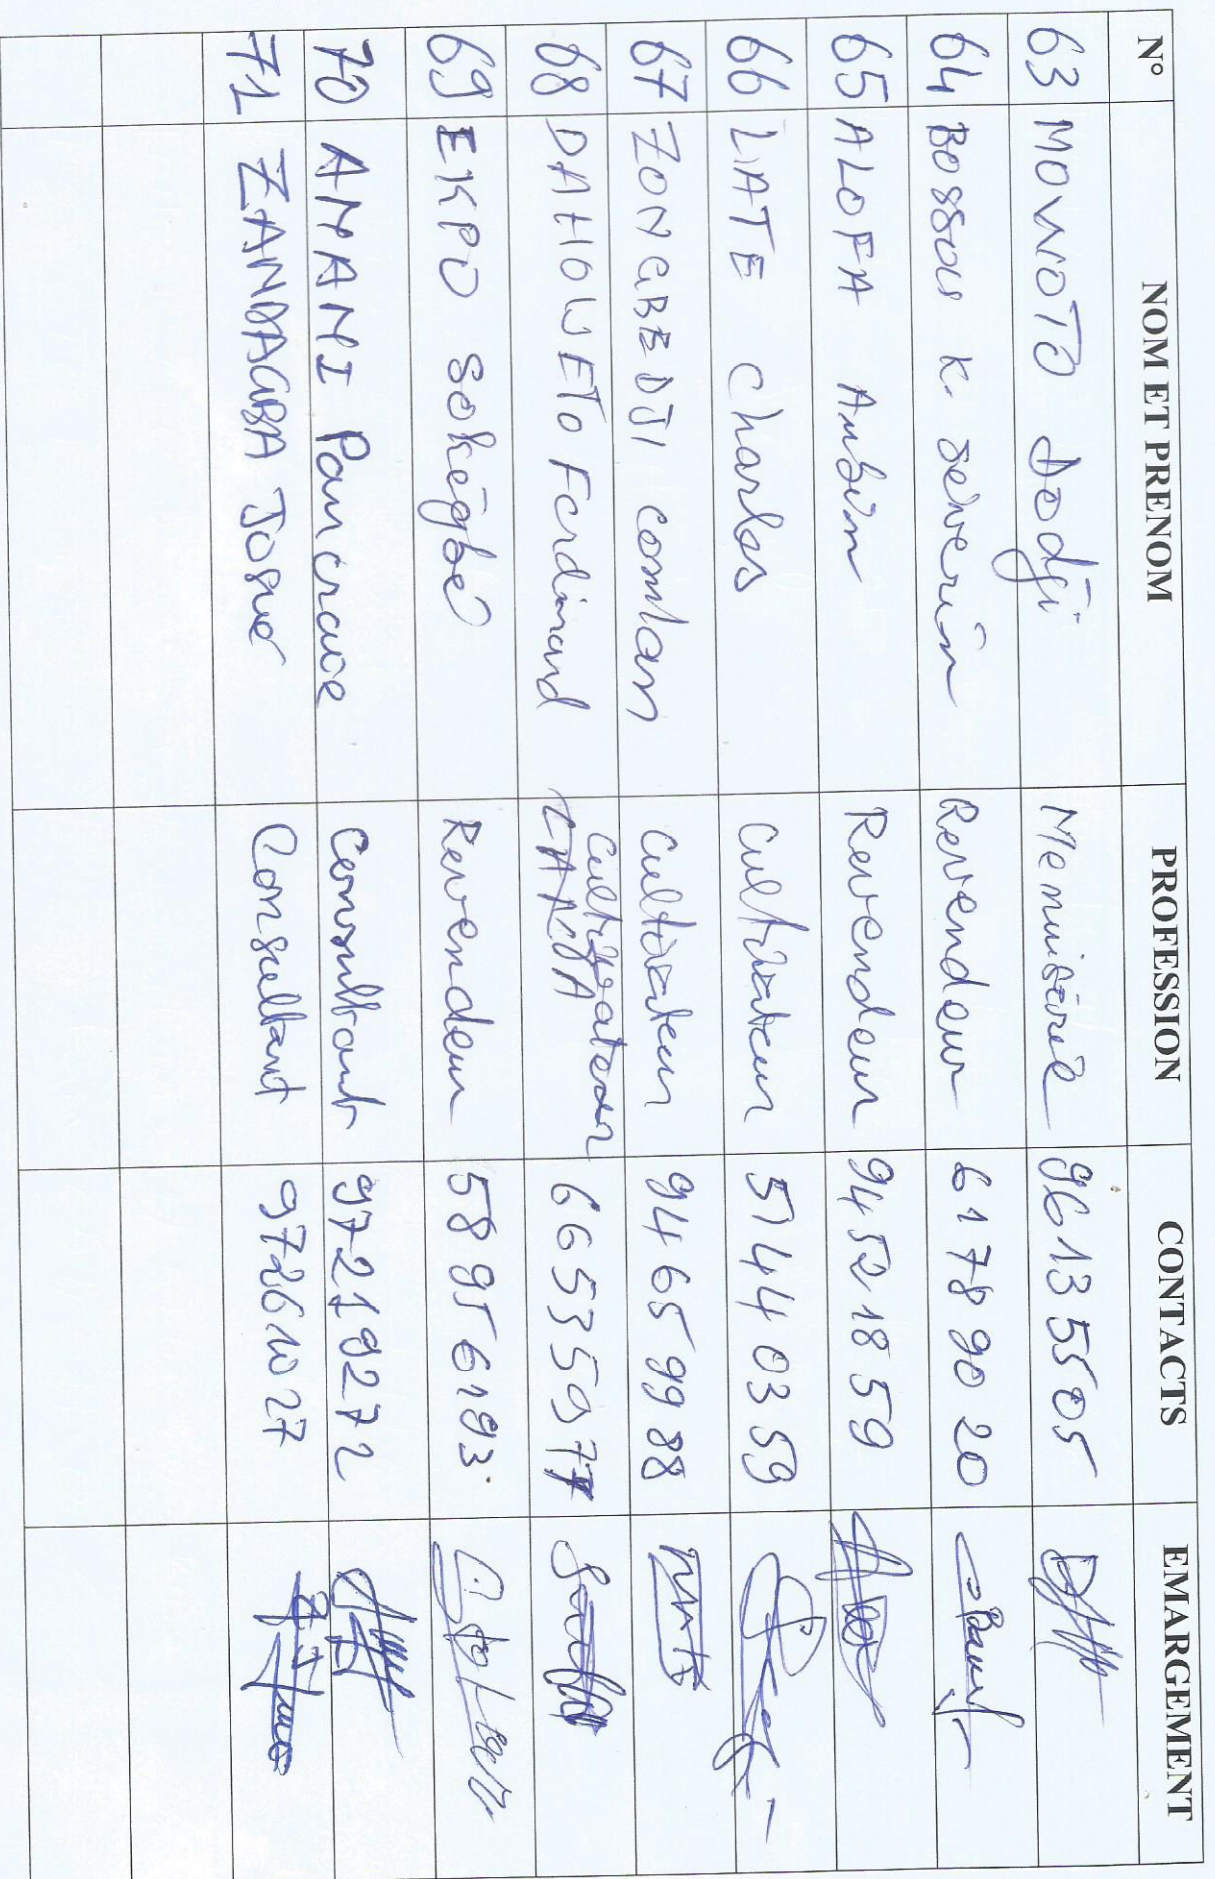 N° NOM ET PRENOM PROFESSION CONTACTS EMARGEMENT
63 MOWOTO Dodji Menuisier 96 13 55 05
64 BOSSOU K. Séverin Revendeur 61 78 90 20
65 ALOFA Aubin Revendeur 94 52 18 59
66 LIATE Charles Cultivateur 51 44 03 59
67 ZONGBEDJI comlan Cultivateur 94 65 99 88
68 DAHOWETO Ferdinand Cultivateur 66 53 59 77
69 EKPO Sokēgbé Revendeur 58 95 61 93
70 AMANI Pancrace Consultant 97219272
71 ZANDAGBA Josué Consultant 97261027